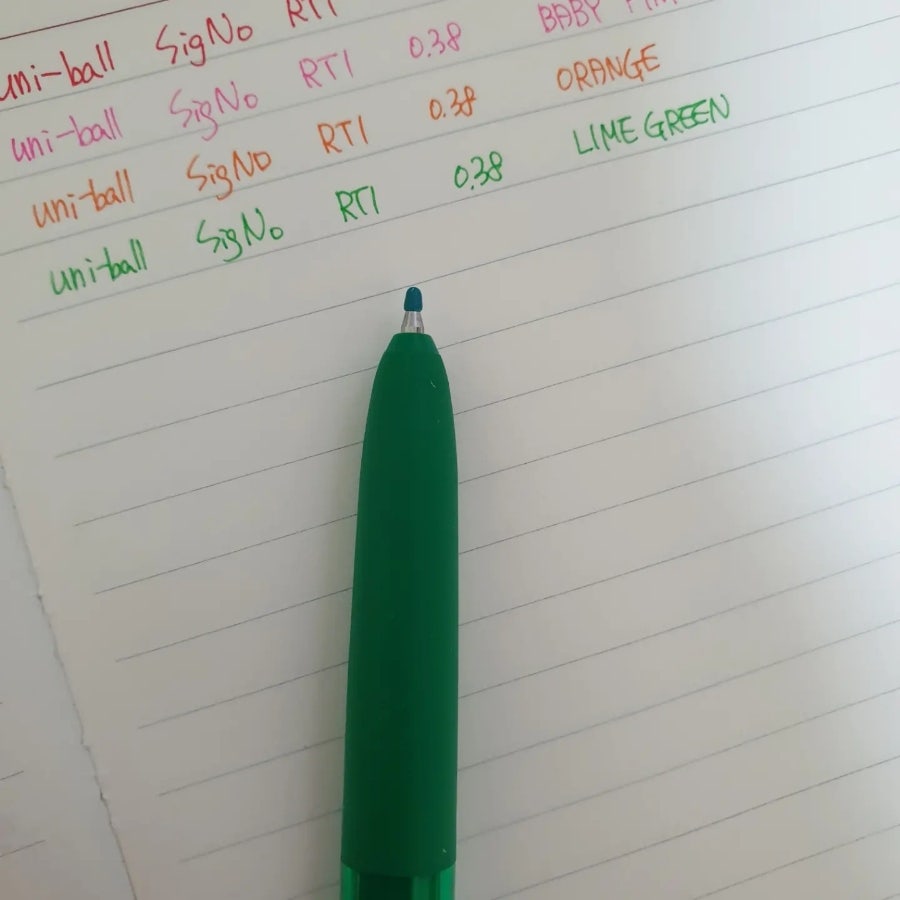 uni-ball SigNo RT1
uni-ball SigNo RT1 0.38 BABY
uni-ball SigNo RT1 0.38 ORANGE
uni-ball SigNo RT1 0.38 LIME GREEN